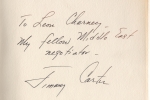 To Leon Charney -
My fellow Middle East
negotiator -
Jimmy Carter